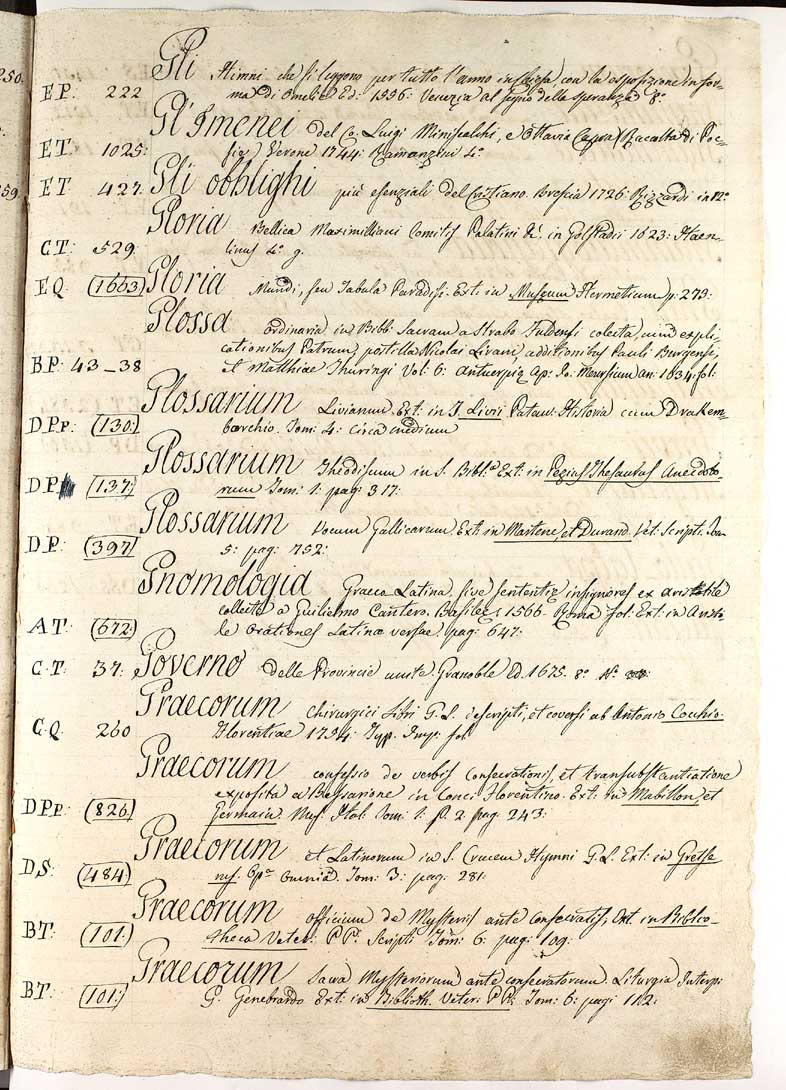 250.
Gli Himni che si leggono per tutto l'anno in chiesa, con la esposizione in for-
EP. 222 ma di Omelie Ed: 1556: Venezia al segno della speranza 8.º
Gl'Imenei del Co. Luigi Miniscalchi, e Ottavia (Raccolta di Poe-
ET. 1025: sie) Verone 1744: Ramanzini 4.º
59. ET 427. Gli obblighi più esenziali del Cristiano. Brescia 1726: Rizzardi in 12.º
Gloria Bellica Maximilliani Comitis Palatini &c. in Golstadii 1623: Haen-
CT: 529. linus 4.º g.
EQ. (1663) Gloria Mundi, seu Tabula Paradisi. Ext: in Museum Hermeticum p: 279:
Glossa ordinaria in Bibl: Sacram a Strabo Fuldensi colecta, cum expli-
cationibus Patrum, postilla Nicolai Lirani, additionibus Pauli Burgensis,
BP: 43_38 et Matthiae Thuringi Vol: 6: Antuerpiæ Ap: Jo: Meursium an: 1634. fol:
Glossarium Livianum. Ext: in T. Livii Pataw: Historia cum Drakem-
DPp: (130:) borchio. Tom: 4: circa medium
Glossarium Theodiscum in S. Bibl.ª Ext: in Pezius Thesaurus Anecdoto-
DP: (137:) rum Tom: 1: pag: 317:
Glossarium vocum Gallicarum. Ext: in Martene, et Durand. Vet: Script: Tom
DP: (397) 5: pag: 752:
Gnomologia Graeco Latina, sive sententiæ insigniores ex aristotile
collecte a Guilielmo Cantero. Basileæ 1566. Roma fol: Ext: in Aristo-
AT: (672:) le Orationes Latinæ versae. pag: 647:
CT: 37: Governo delle Provincie unite. Granoble Ed. 1675. 8.º N.º
Graecorum Chirurgici libri G.L. descripti, et coversi ab Antonio Cocchio.
CQ. 260 Florentiae 1754: Typ. Imp: fol.
Graecorum confessio de verbis Consecrationis, et transubstantiatione
exposita a Bessarione in Conci Florentino. Ext: in Mabillon, et
DPp: (826) Germain Mus: Ital: Tom: 1: p. 2. pag: 243:
Graecorum et Latinorum in S. Crucem Hymni G.L. Ext: in Gretse
DS: (484) rus. Opª omnia. Tom: 3: pag: 281:
Graecorum officium de Mysteriis ante consecratis, Ext: in Biblio-
BT: (101:) theca Veter: PP: Scripti Tom: 6: pag: 109:
Graecorum sacra Mysteriorum ante consecratorum. Liturgia Interp:
BT: (101:) G. Genebrardo Ext: in Biblioth. Veter: PP. Tom: 6: pagi 112: